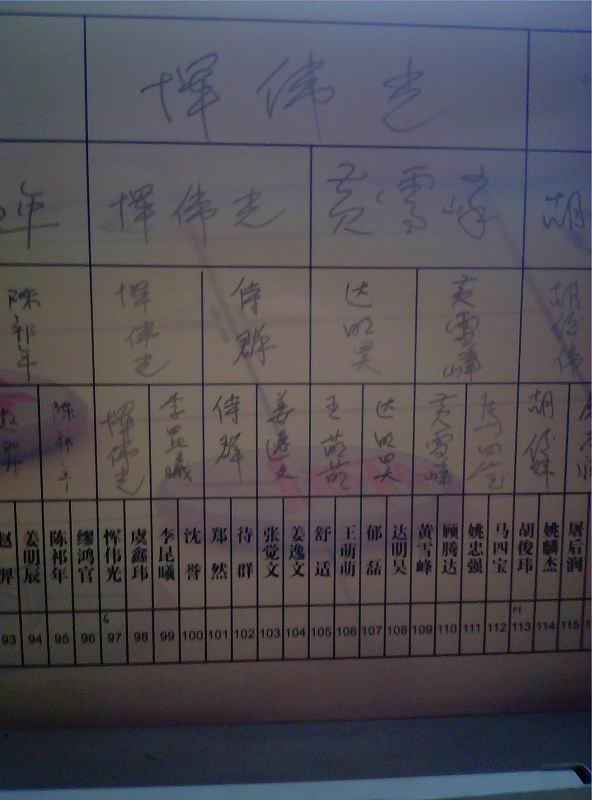 恽伟光
年 恽伟光 黄雪峰 胡
陈祁年 恽伟光 待群 达明昊 黄雪峰 胡俊伟
陈祁年 恽伟光 李昆曦 待群 姜逸文 王萌萌 达明昊 黄雪峰 马四宝 胡俊玮
赵羿 姜明辰 陈祁年 缪鸿官 恽伟光 虞鑫玮 李昆曦 沈誉 郑然 待群 张觉文 姜逸文 舒适 王萌萌 郁磊 达明昊 黄雪峰 顾腾达 姚忠强 马四宝 胡俊玮 姚麟杰 屠后润
93 94 95 96 97 98 99 100 101 102 103 104 105 106 107 108 109 110 111 112 113 114 115